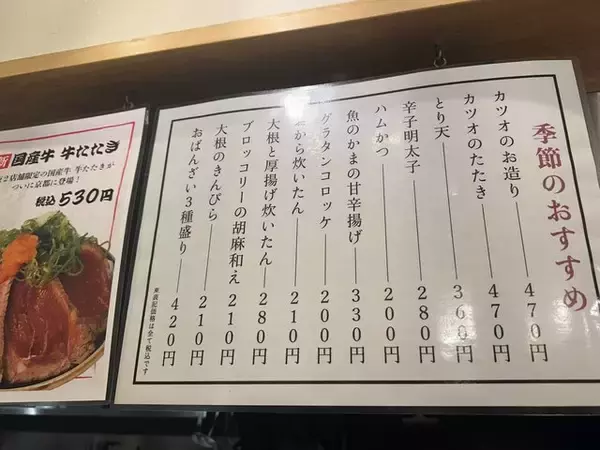 季節のおすすめ
カツオのお造り 470円
カツオのたたき 470円
とり天 360円
辛子明太子 280円
ハムかつ 200円
魚のかまの甘辛揚げ 330円
グラタンコロッケ 200円
から炊いたん 210円
大根と厚揚げ炊いたん 280円
ブロッコリーの胡麻和え 210円
大根のきんぴら 210円
おばんざい3種盛り 420円
表記価格は全て税込です
国産牛 牛たたき
2店舗限定の国産牛 牛たたきが
ついに京都に登場!
税込530円